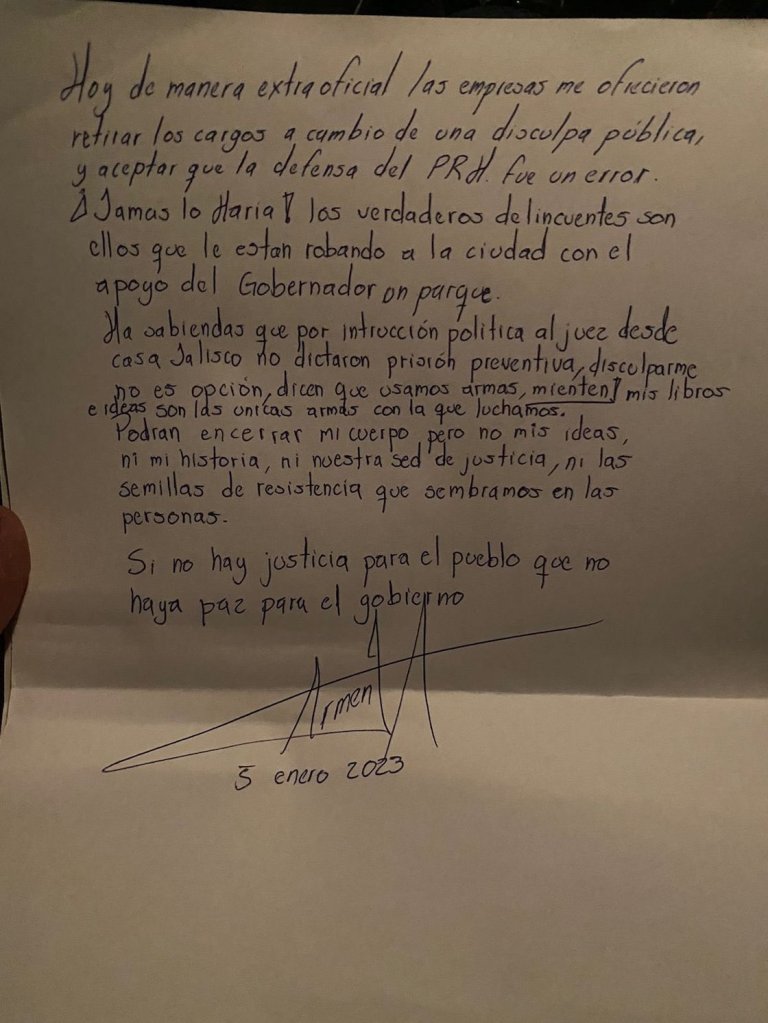 Hoy de manera extraoficial las empresas me ofrecieron
retirar los cargos a cambio de una disculpa pública,
y aceptar que la defensa del PRH. fue un error.
¡Jamas lo Haria! los verdaderos delincuentes son
ellos que le estan robando a la ciudad con el
apoyo del Gobernador on parque.
Ha sabiendas que por intrucción politica al juez desde
casa Jalisco no dictaron prisión preventiva, disculparme
no es opción, dicen que usamos armas, mienten! mis libros
e ideas son las unicas armas con la que luchamos.
Podran encerrar mi cuerpo pero no mis ideas,
ni mi historia, ni nuestra sed de justicia, ni las
semillas de resistencia que sembramos en las
personas.
Si no hay justicia para el pueblo que no
haya paz para el gobierno
Armen
5 enero 2023